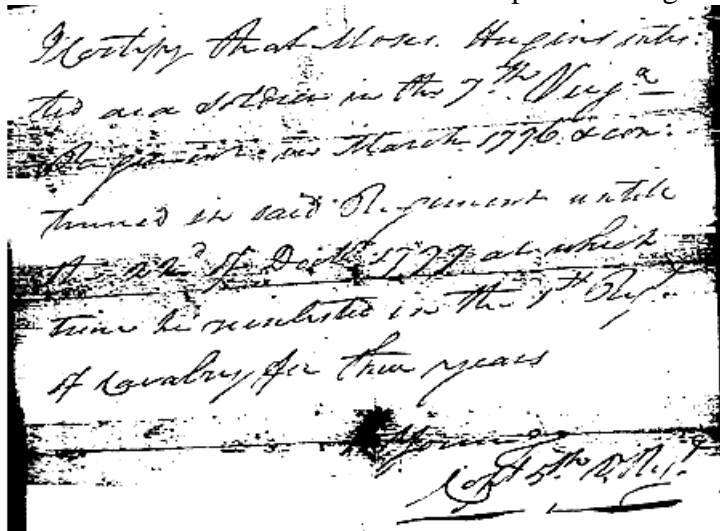 I Certify that Moses Hugins inlis:
ted as a Soldier in the 7th Virga
Regiment in March 1776 & con:
tinued in said Regiment untill
22d of Decr 1777 at which
time he reenlisted in the 1st Regt
of Cavalry for three years
Young
Capt